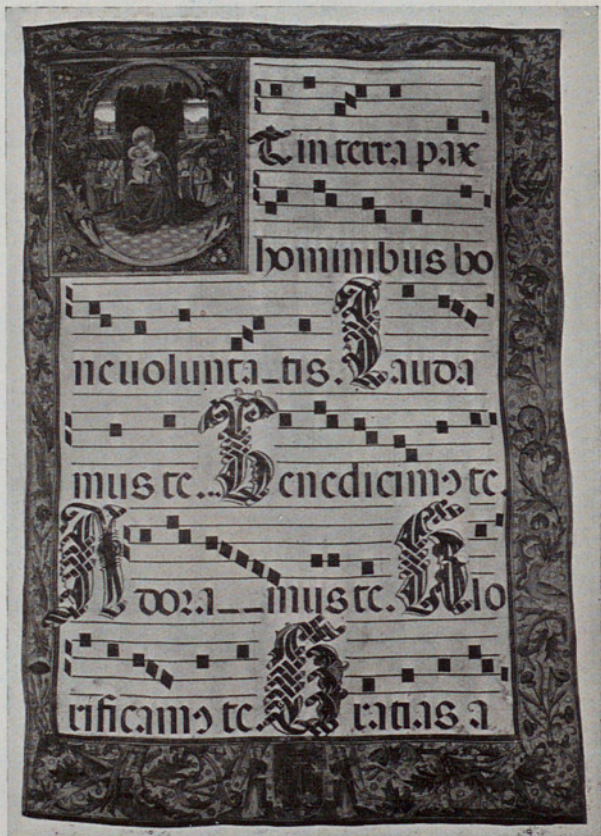 Et in terra pax
hominibus bo
ne uolunta_tis. Lauda
mus te.. Benedicimꝰ te.
Adora__mus te. Glo
rificamꝰ te. Gratias a